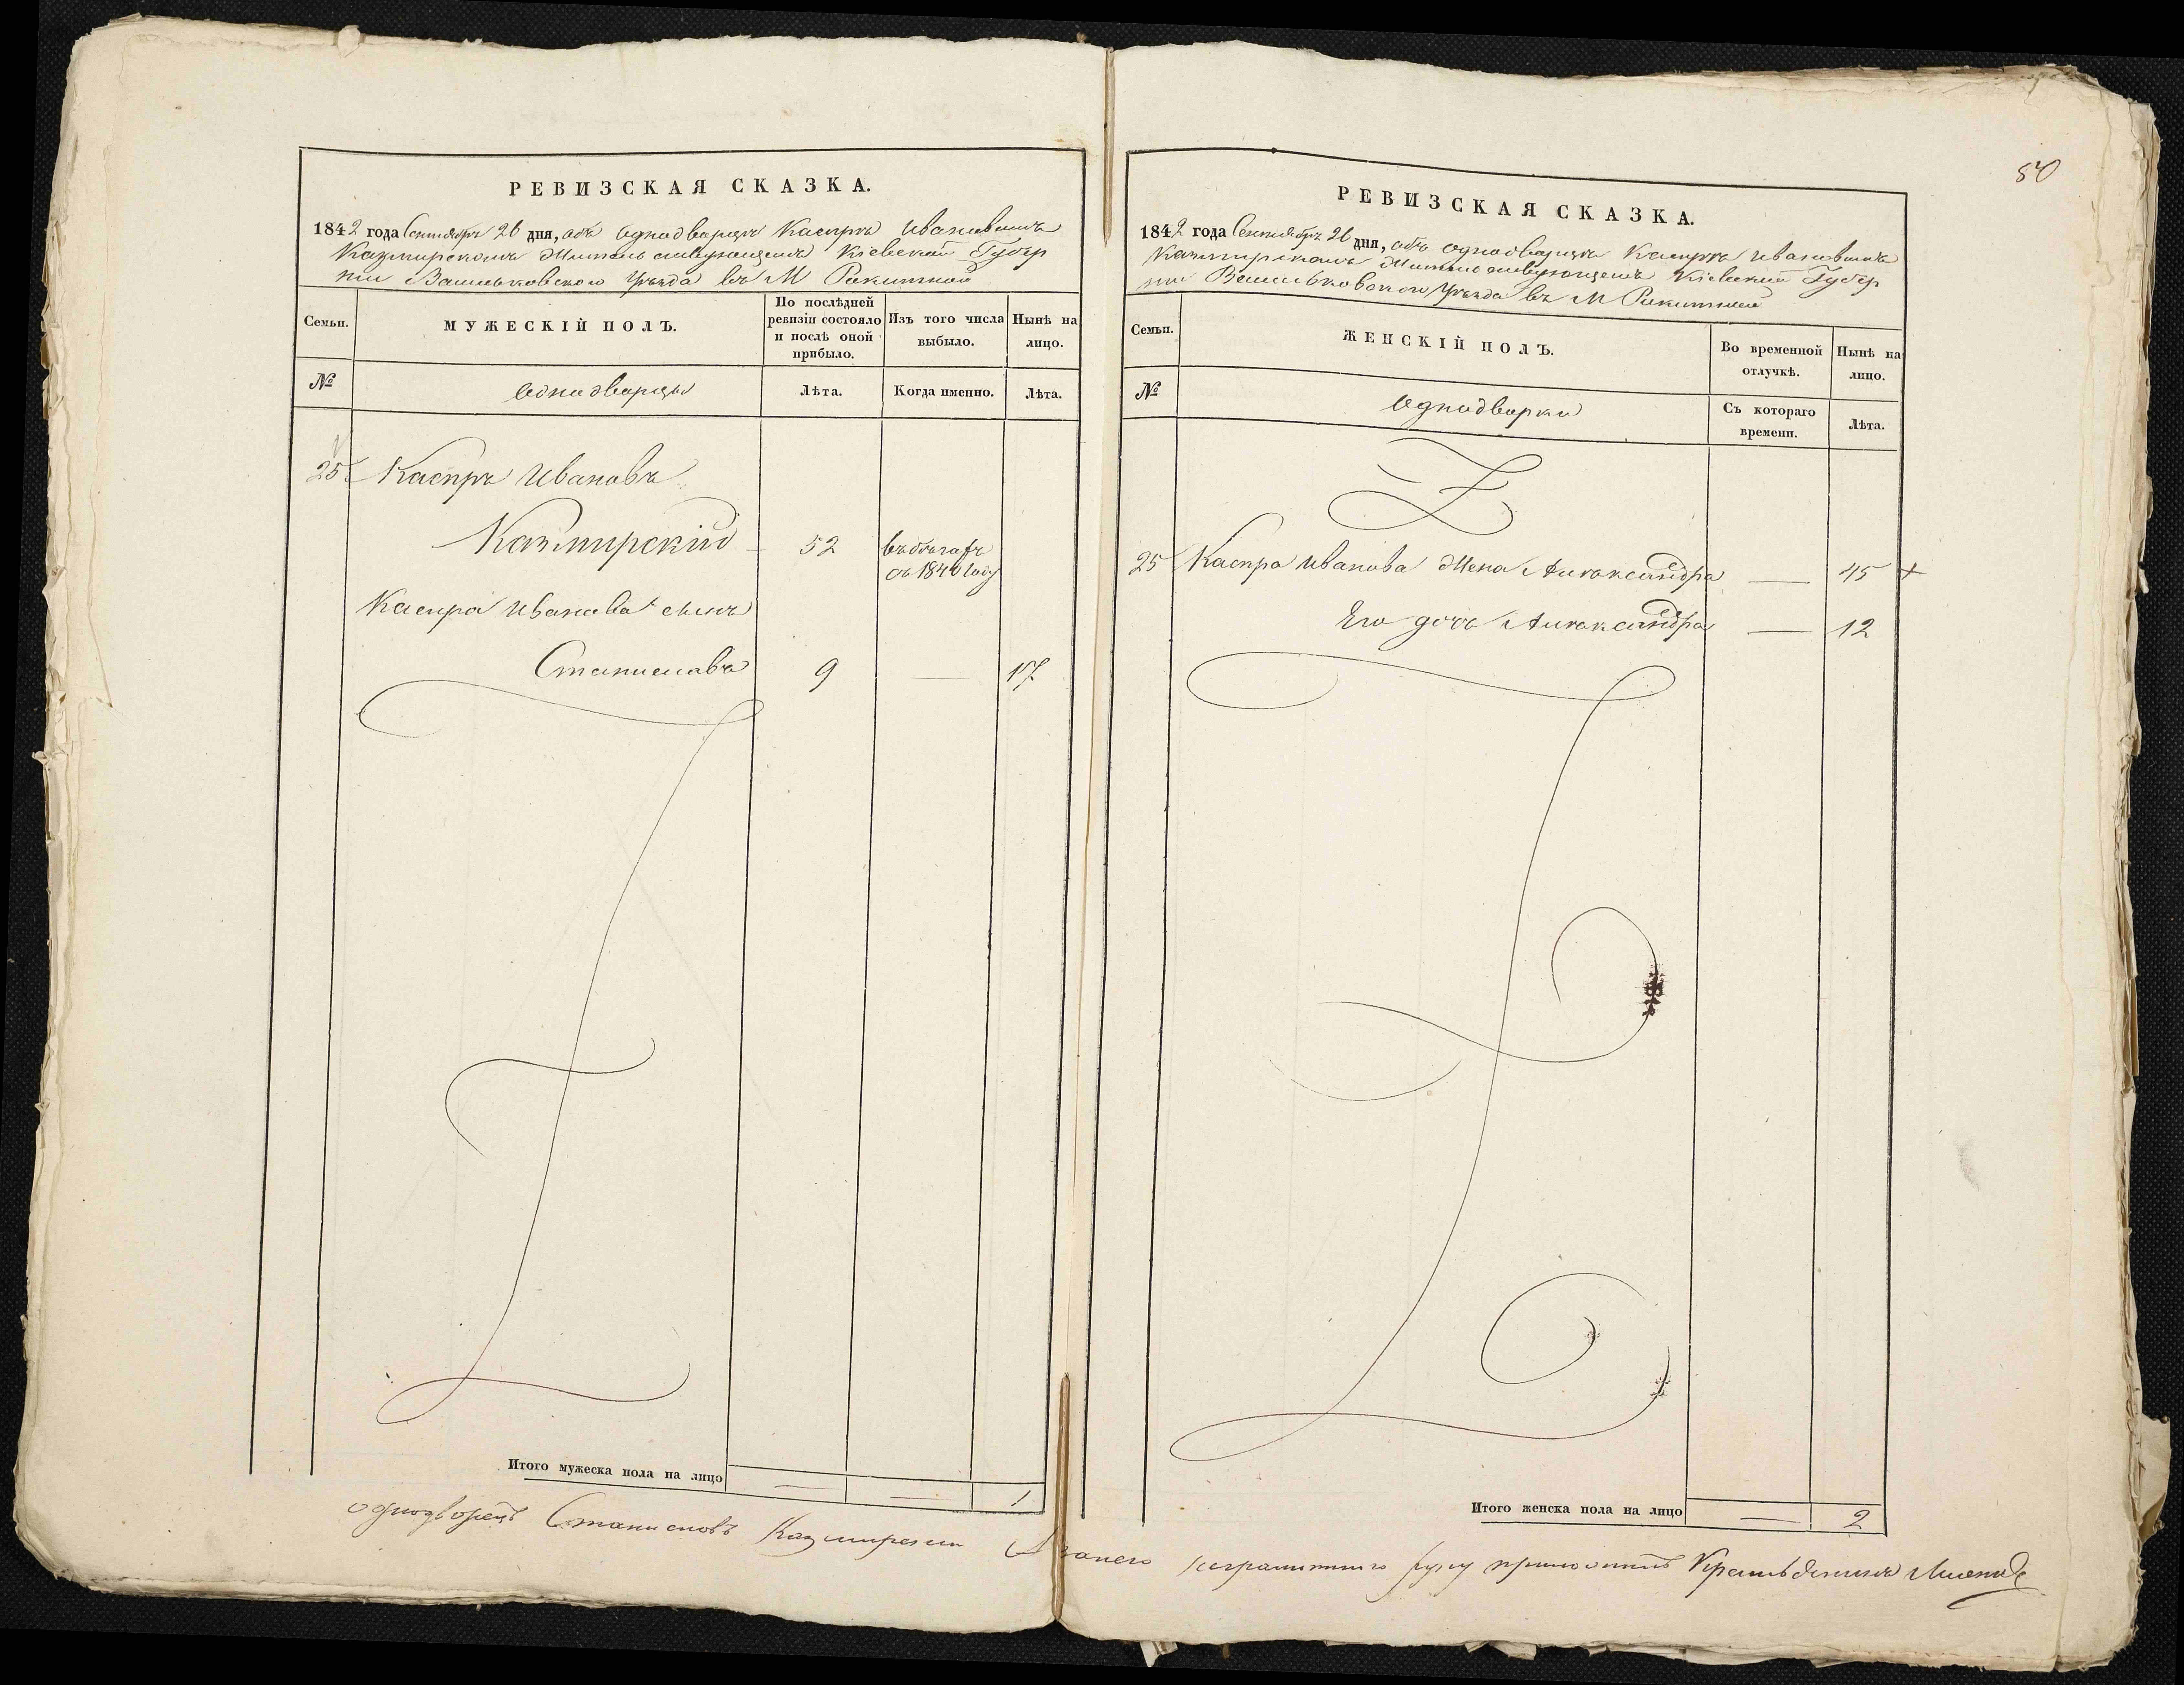 80
РЕВИЗСКАЯ СКАЗКА.
1842 года Сентября 26 дня, объ однодворцѣ Каспрѣ Ивановичѣ
Казмирскомъ Жительствующемъ Кіевской Губер
ніи Васильковскаго Уѣзда въ М Ракитной
Семьи.
МУЖЕСКІЙ ПОЛЪ.
По послѣдней ревизіи состояло и послѣ оной прибыло.
Изъ того числа выбыло.
Нынѣ на лицо.
№
Однодворцы
Лѣта.
Когда именно.
Лѣта.
25 Каспръ Ивановъ
Казмирскій 52 въ бѣгахъ
съ 1840 году
Каспра Иванова сынъ
Станиславъ 9 — 17
Итого мужеска пола на лицо — — 1
РЕВИЗСКАЯ СКАЗКА.
1842 года Сентября 26 дня, объ однодворцѣ Каспрѣ Ивановичѣ
Казмирскомъ Жительствующемъ Кіевской Губер
ніи Васильковскаго Уѣзда въ М Ракитной
Семьи.
ЖЕНСКІЙ ПОЛЪ.
Во временной отлучкѣ.
Нынѣ на лицо.
№
Однодворки
Съ котораго времени.
Лѣта.
25 Каспра Иванова Жена Александра — 45 +
Его дочь Александра — 12
Итого женска пола на лицо — 2
однодворецъ Станиславъ Казмирскій А занего неграмотного руку приложилъ